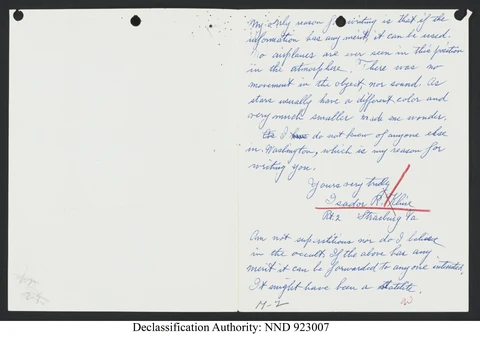 My only reason for writing is that if the
information has any merit, it can be used.
No airplanes are ever seen in this position
in the atmosphere. There was no
movement in the object, nor sound. As
stars usually have a different color and
very much smaller made me wonder.
As I do not know of anyone else
in Washington, which is my reason for
writing you.
Yours very truly
Isador R. Kline
Rt. 2 Strasburg Va.
Am not superstitious nor do I believe
in the occult. If the above has any
merit it can be forwarded to any one interested.
It might have been a satelite.
M-2
Declassification Authority: NND 923007